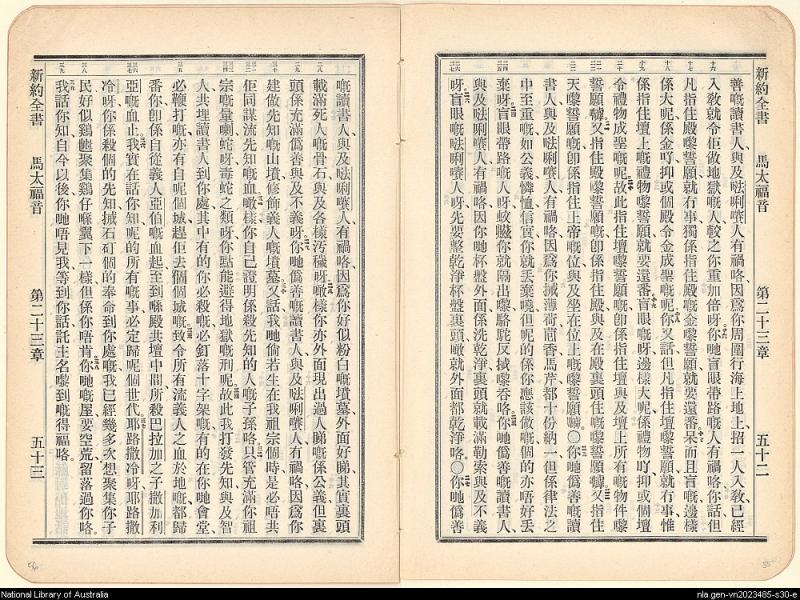 新約全書 馬太福音 第二十三章 五十二
善嘅讀書人、與及㕸唎㘔人有禍咯、因爲你周圍行海上地上、招一人入敎、已經
入敎就令佢做地獄嘅人、較之你重加倍呀、你哋盲眼帶路嘅人有禍咯、你話、但
凡指住殿嚟誓願、就冇事、獨係指住殿嘅金嚟誓願、就要還番、呆而且盲嘅、邊樣
係大呢、係金吖、抑或個殿令金成聖嘅呢、你又話、但凡指住壇嚟誓願、就冇事、惟
係指住壇上嘅禮物嚟誓願、就要還番、盲眼嘅呀、邊樣大呢、係禮物吖、抑或個壇
令禮物成聖嘅呢、故此指住壇嚟誓願嘅、卽係指住壇與及壇上所有嘅物件嚟
誓願嘛、又指住殿嚟誓願嘅、卽係指住殿、與及在殿裏頭住嘅嚟誓願嘛、又指住
天嚟誓願嘅、卽係指住上帝嘅位、與及坐在位上嘅嚟誓願嘛、〇你哋僞善嘅讀
書人、與及㕸唎㘔人有禍咯、因爲你
中至重嘅、如公義憐恤信實、你就丢棄曉、但呢的係你應該做嘅、個的亦唔好丢
棄呀、盲眼帶路嘅人呀、蚊
與及㕸唎㘔人有禍咯、因你哋杯盤外面係洗乾淨、裏頭就載滿勒索與及不義
呀、盲眼嘅㕸唎㘔人呀、先要整乾淨杯盤裏頭、噉就外面都乾淨咯、〇你哋僞善
新約全書 馬太福音 第二十三章 五十三
嘅讀書人、與及㕸唎㘔人有禍咯、因爲你好似粉白嘅墳墓、外面好睇、其實裏頭
載滿死人嘅骨石、與及各樣汚穢呀、噉樣你亦外面現出過人睇嘅係公義、但裏
頭係充滿僞善與及不義呀、你哋僞善嘅讀書人、與及㕸唎㘔人有禍咯、因爲你
建做先知嘅山墳、修飾義人嘅墳墓、又話我哋倘若生在我祖宗個時、是必唔共
佢同謀流先知嘅血、噉樣你自己證明係殺先知的人之子孫咯、只管充滿你祖
宗嘅量喇、蛇呀、毒蛇之類呀、你點能避得地獄嘅刑呢、故此我打發先知與及智
人、共埋讀書人到你處、其中有的你必殺嘅、必釘落十字架嘅、有的在你哋會堂
必鞭打嘅、亦有自呢個城趕佢去個個城嘅、致令所有流義人之血於地嘅、都歸
番你、卽係自從義人亞伯嘅血起、至到喺殿共壇中間所殺巴拉加之子撒加利
亞嘅血止、我實在話你知、呢的所有嘅事、必定歸呢個世代、耶路撒冷呀、耶路撒
冷呀、你係殺個的先知、搣石矴個的奉命到你處嘅、我已經幾多次想聚集你子
民、好似鷄乸聚集鷄仔喺翼下一樣、但係你唔肯、你哋嘅屋要空荒留落過你咯、
我話你知、自今以後、你哋唔見我、等到你話託主名嚟到嘅得福咯、
National Library of Australia
nla.gen-vn2023485-s30-e